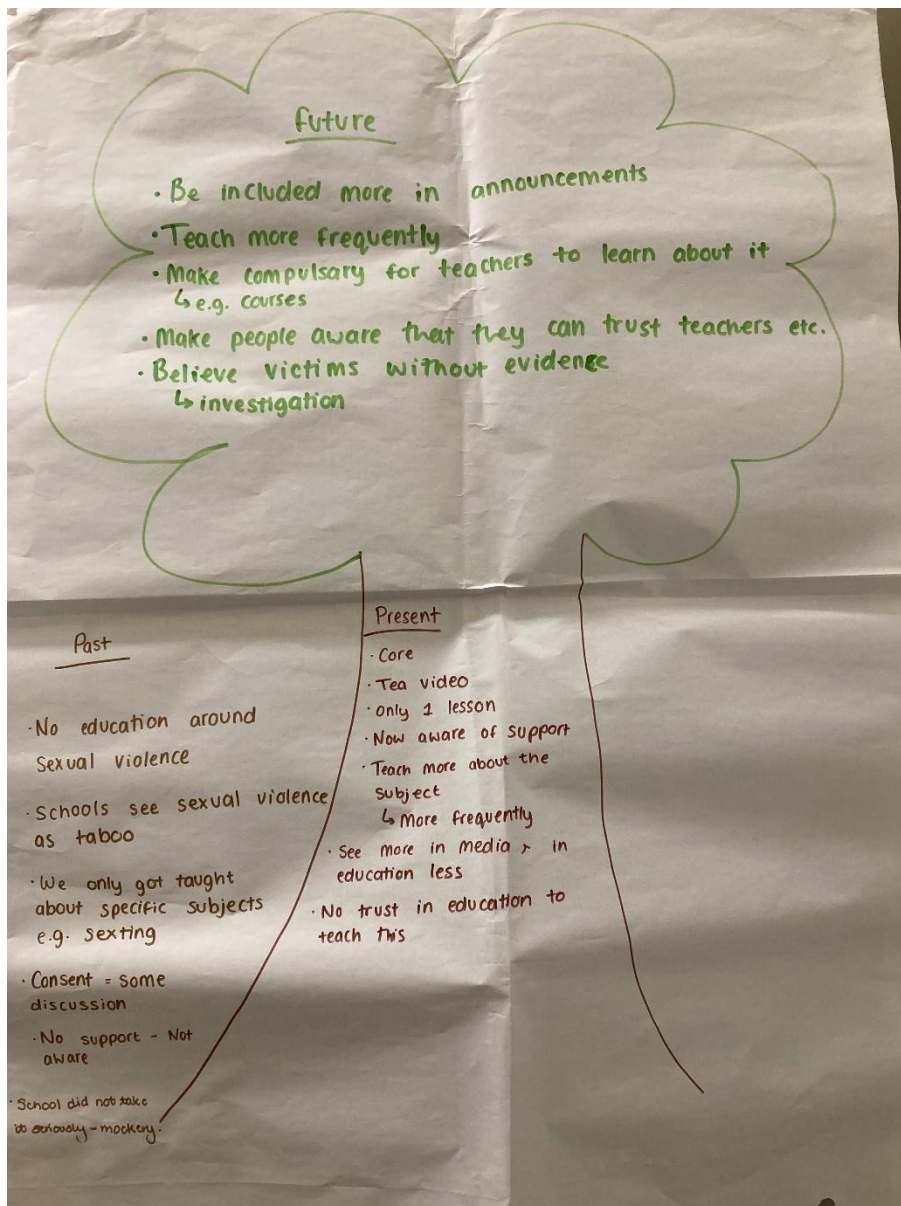 Future
· Be included more in announcements
· Teach more frequently
· Make compulsary for teachers to learn about it
↳ e.g. courses
· Make people aware that they can trust teachers etc.
· Believe victims without evidence
↳ investigation
Past
· No education around
sexual violence
· Schools see sexual violence
as taboo
· We only got taught
about specific subjects
e.g. sexting
· Consent = some
discussion
· No support - Not
aware
· School did not take
it seriously - mockery.
Present
· Core
· Tea video
· Only 1 lesson
· Now aware of support
· Teach more about the
subject
↳ More frequently
· See more in media, in
education less
· No trust in education to
teach this